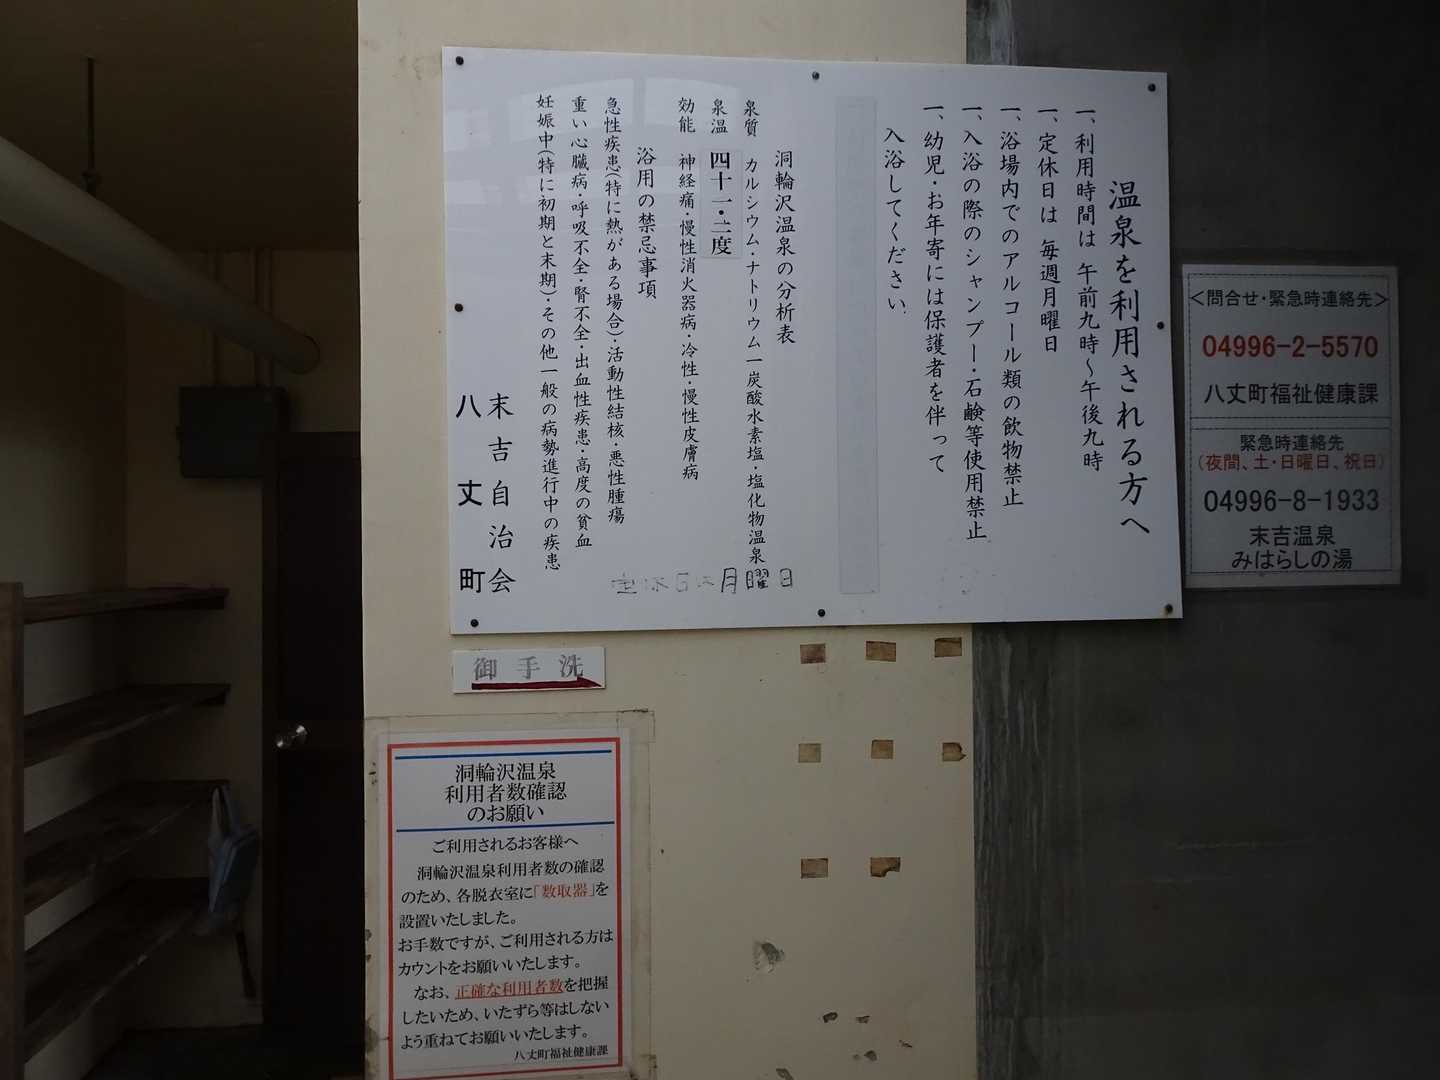 温泉を利用される方へ
一、利用時間は 午前九時～午後九時
一、定休日は 毎週月曜日
一、浴場内でのアルコール類の飲物禁止
一、入浴の際のシャンプー・石鹸等使用禁止
一、幼児・お年寄には保護者を伴って
入浴してください。
洞輪沢温泉の分析表
泉質 カルシウム・ナトリウム一炭酸水素塩・塩化物温泉
泉温 四十一・二度
効能 神経痛・慢性消火器病・冷性・慢性皮膚病
浴用の禁忌事項
急性疾患(特に熱がある場合)・活動性結核・悪性腫瘍
重い心臓病・呼吸不全・腎不全・出血性疾患・高度の貧血
妊娠中(特に初期と末期)・その他一般の病勢進行中の疾患
末吉自治会
八丈町
定休日は月曜日
<問合せ・緊急時連絡先>
04996-2-5570
八丈町福祉健康課
緊急時連絡先
(夜間、土・日曜日、祝日)
04996-8-1933
末吉温泉
みはらしの湯
御手洗
洞輪沢温泉
利用者数確認
のお願い
ご利用されるお客様へ
洞輪沢温泉利用者数の確認
のため、各脱衣室に「数取器」を
設置いたしました。
お手数ですが、ご利用される方は
カウントをお願いいたします。
なお、正確な利用者数を把握
したいため、いたずら等はしない
よう重ねてお願いいたします。
八丈町福祉健康課